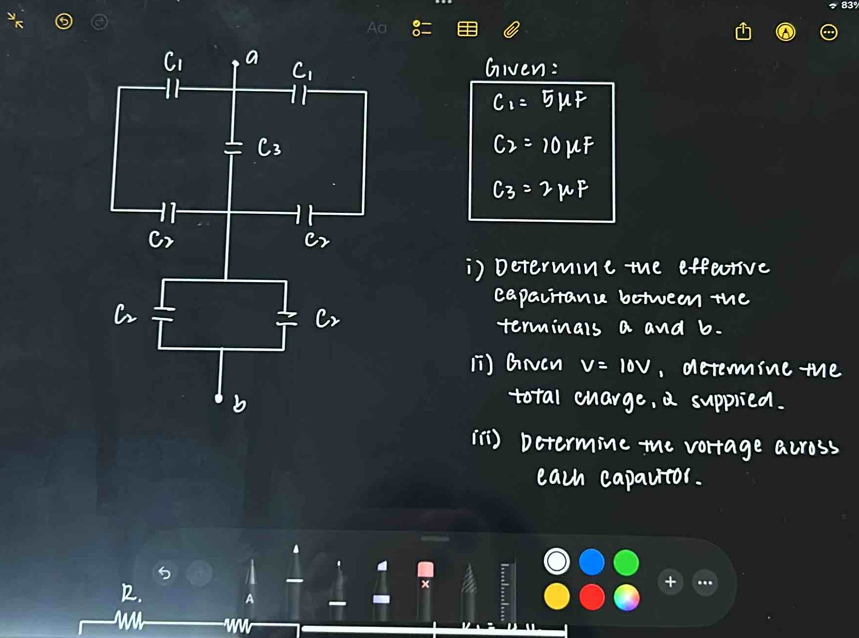 83%
Aa
a
C1
C1
C3
C2
C2
C2
C2
b
Given:
C1 = 5μF
C2 = 10μF
C3 = 2μF
i) Determine the effective
capacitance between the
terminals a and b.
ii) Given V = 10V, determine the
total charge, Q supplied.
iii) Determine the voltage across
each capacitor.
A
R.